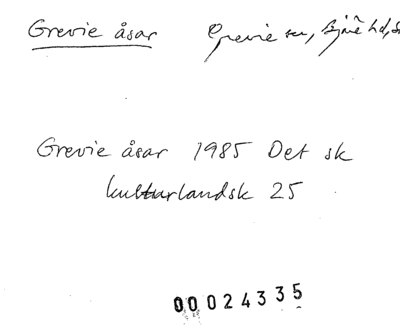 Grevie åsar Grevie sn, Bjäre hd, S
Grevie åsar 1985 Det sk
kulturlandsk 25
00024335